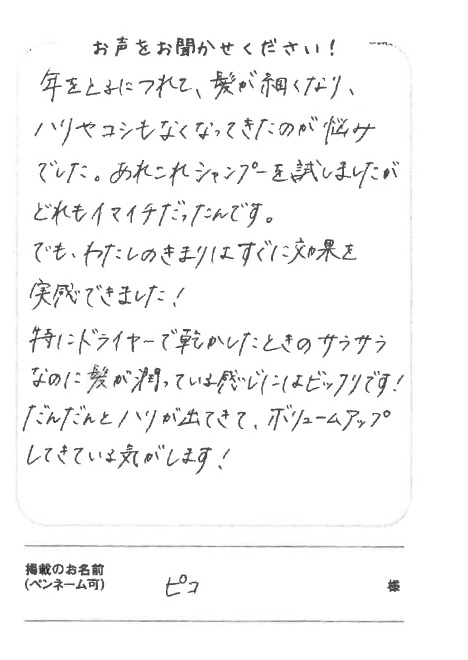 お声をお聞かせください！
年をとるにつれて、髪が細くなり、
ハリやコシもなくなってきたのが悩み
でした。あれこれシャンプーを試しましたが
どれもイマイチだったんです。
でも、わたしのきまりはすぐに効果を
実感できました！
特にドライヤーで乾かしたときのサラサラ
なのに髪が潤っている感じにはビックリです！
だんだんとハリが出てきて、ボリュームアップ
してきている気がします！
掲載のお名前
(ペンネーム可) ピコ 様